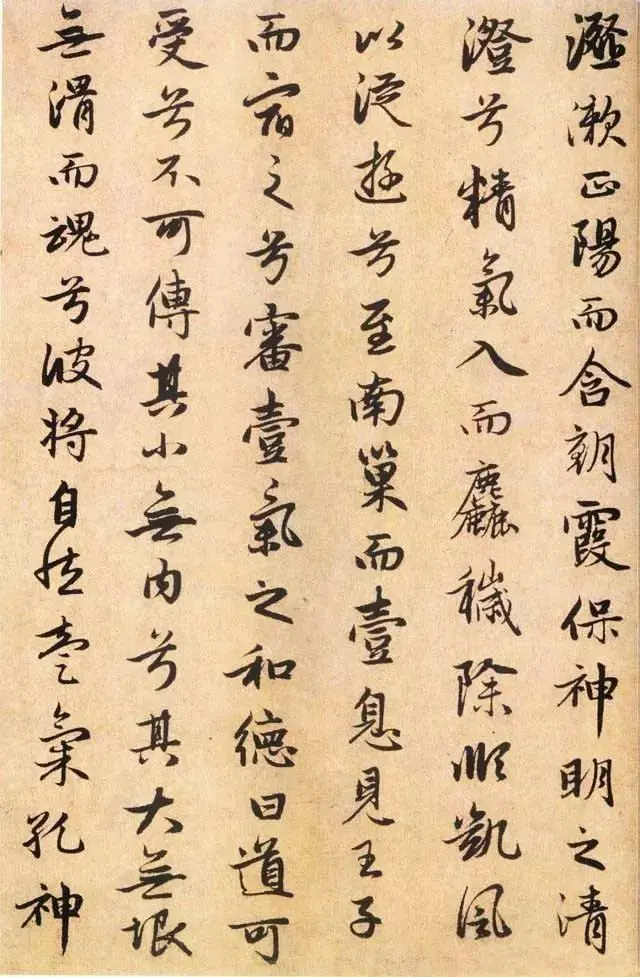 瀣漱正陽而含朝霞保神明之清
澄兮精氣入而麤穢除順凱風
以從遊兮至南巢而壹息見王子
而宿之兮審壹氣之和德曰道可
受兮不可傳其小無内兮其大無垠
無滑而魂兮彼將自然壹氣孔神